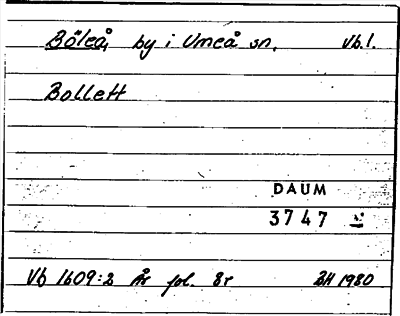 Böleå, by i Umeå sn. Vb.l.
Bollett
DAUM
3747
Vb 1609:2 År fol. 8r BH 1980